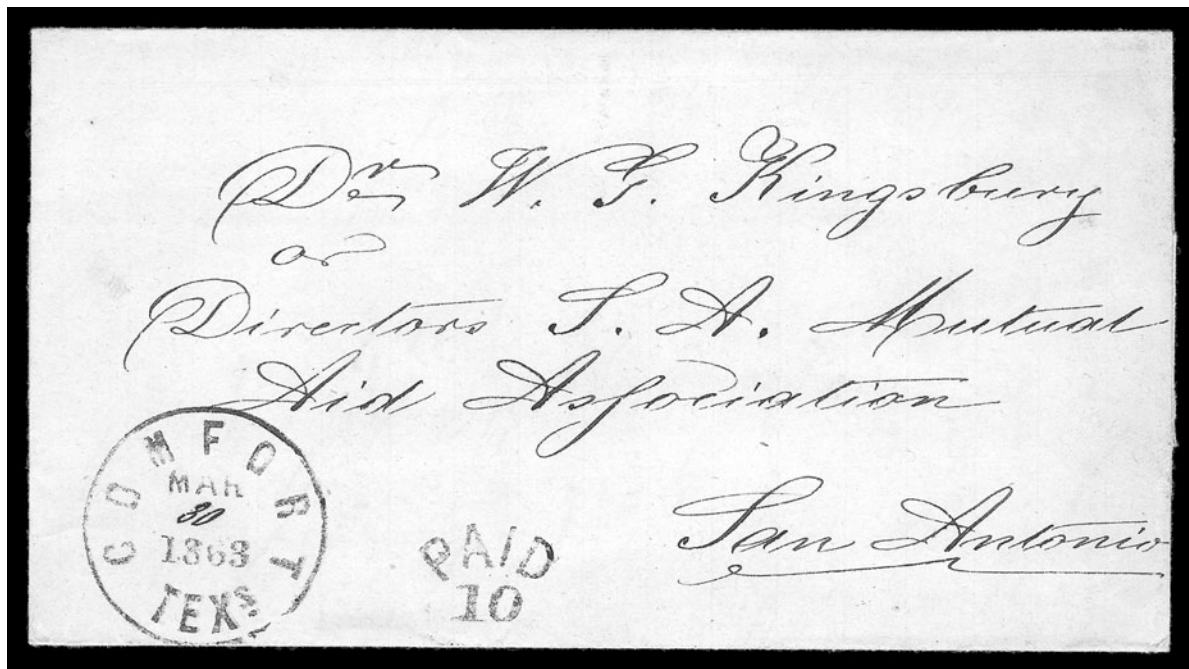 Dr W. G. Kingsbury
or
Directors S. A. Mutual
Aid Association
San Antonio
COMFORT
MAR
30
1863
TEXS
PAID
10